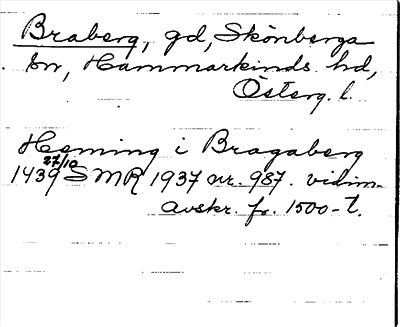 Braberg, gd, Skönberga
sn, Hammarkinds hd,
Österg. l.
Heming i Bragaberg
1439 27/10 SMR 1937 nr. 987. vidim.
avskr. fr. 1500-t.